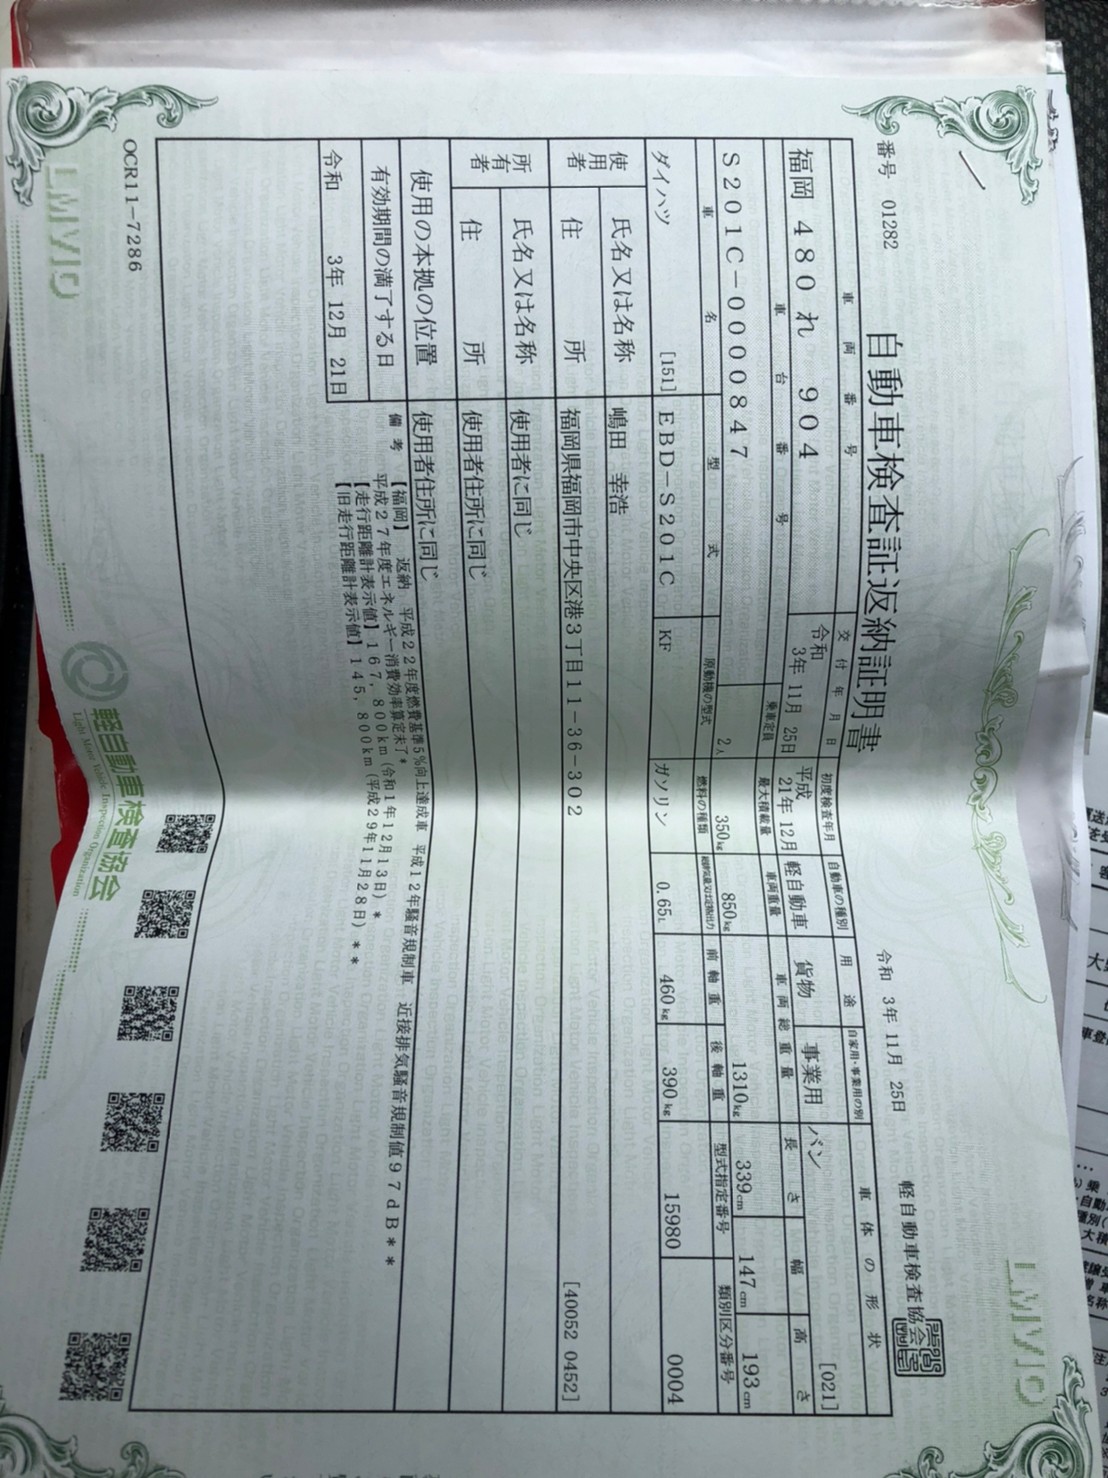 番号 01282
自動車検査証返納証明書
令和 3年 11月 25日
軽自動車検査協会
車両番号 交付年月日 初度検査年月 自動車の種別 用途 自家用・事業用の別 車体の形状
福岡 480 れ 904 令和 3年 11月 25日 平成 21年 12月 軽自動車 貨物 事業用 バン [021]
車台番号 乗車定員 最大積載量 車両重量 車両総重量 長さ 幅 高さ
S201C-0000847 2人 350kg 850kg 1310kg 339cm 147cm 193cm
車名 型式 原動機の型式 燃料の種類 総排気量又は定格出力 前軸重 後軸重 型式指定番号 類別区分番号
ダイハツ [151] EBD-S201C KF ガソリン 0.65L 460kg 390kg 15980 0004
使用者 氏名又は名称 嶋田 幸浩
住所 福岡県福岡市中央区港3丁目11-36-302 [40052 0452]
所有者 氏名又は名称 使用者に同じ
住所 使用者住所に同じ
使用の本拠の位置 使用者住所に同じ
有効期間の満了する日
令和 3年 12月 21日
備考 【福岡】 返納 平成22年度燃費基準5%向上達成車 平成12年騒音規制車 近接排気騒音規制値97dB**
平成27年度エネルギー消費効率算定未了*
【走行距離計表示値】167,800km(令和1年12月13日)*
【旧走行距離計表示値】145,800km(平成29年11月28日)**
OCR11-7286
LMVIO
LMVIO
軽自動車検査協会
Light Motor Vehicle Inspection Organization